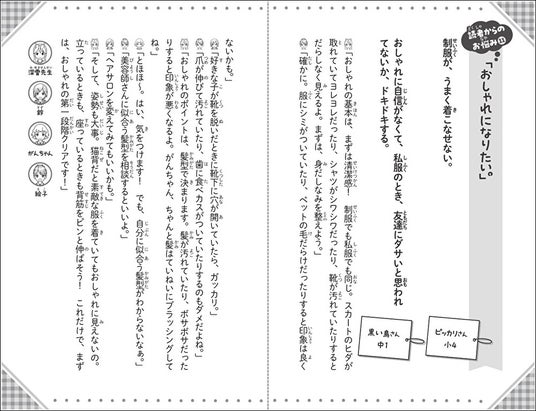 読者からの
お悩み①
「おしゃれになりたい。」
制服が、うまく着こなせない。
ピッカリさん
小4
おしゃれに自信がなくて、私服のとき、友達にダサいと思われ
てないか、ドキドキする。
黒い鳥さん
中1
「おしゃれの基本は、まずは清潔感! 制服でも私服でも同じ。スカートのヒダが
取れていてヨレヨレだったり、シャツがシワシワだったり、靴が汚れていたりすると
だらしなく見えるよ。まずは、身だしなみを整えよう。」
「確かに。服にシミがついていたり、ペットの毛だらけだったりすると印象は良く
ないかも。」
「好きな子が靴を脱いだときに靴下に穴が開いていたら、ガッカリ。」
「爪が伸びて汚れていたり、歯に食べカスがついていたりするのもダメだよね。」
「おしゃれのポイントは、髪型で決まります。髪が汚れていたり、ボサボサだった
りすると印象が悪くなるよ。がんちゃん、ちゃんと髪はていねいにブラッシングして
ね。」
「とほほ〜。はい、気をつけます! でも、自分に似合う髪型がわからないなぁ。」
「美容師さんに似合う髪型を相談するといいよ。」
「ヘアサロンを変えてみてもいいかも。」
「そして、姿勢も大事。猫背だと素敵な服を着ていてもおしゃれに見えないの。
立っているときも、座っているときも背筋をピンと伸ばそう! これだけで、まず
は、おしゃれの第一段階クリアです!」
先生
鈴
がんちゃん
絵子